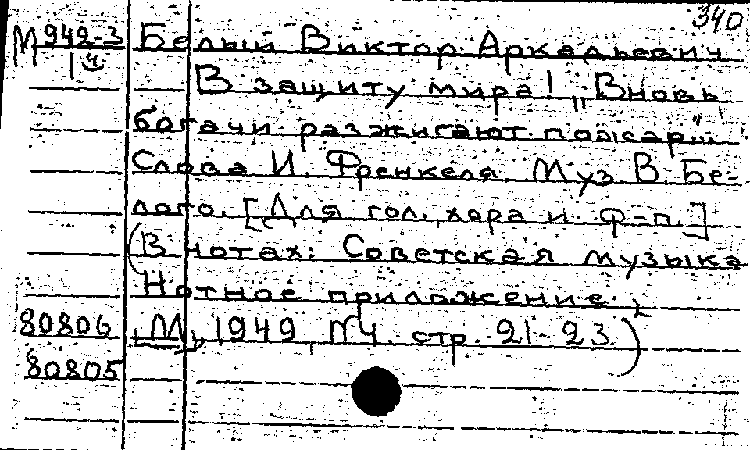 340
М 949-3 Белый Виктор Аркадьевич
1ч В защиту мира! „Вновь
богачи разжигают пожар"...
Слова И. Френкеля. Муз. В. Бе-
лого. [Для гол., хора и ф-п.]
(В нотах: Советская музыка
Нотное приложение.
80806 М., 1949, №4. стр. 21-23)
80805